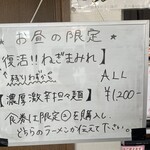 ☆お昼の限定☆
【復活!!ねぎまみれ】
残りわずから
ALL
【濃厚激辛担々麺】
¥1,200-
食券は限定②を購入し
どちらのラーメンか伝えて下さい。